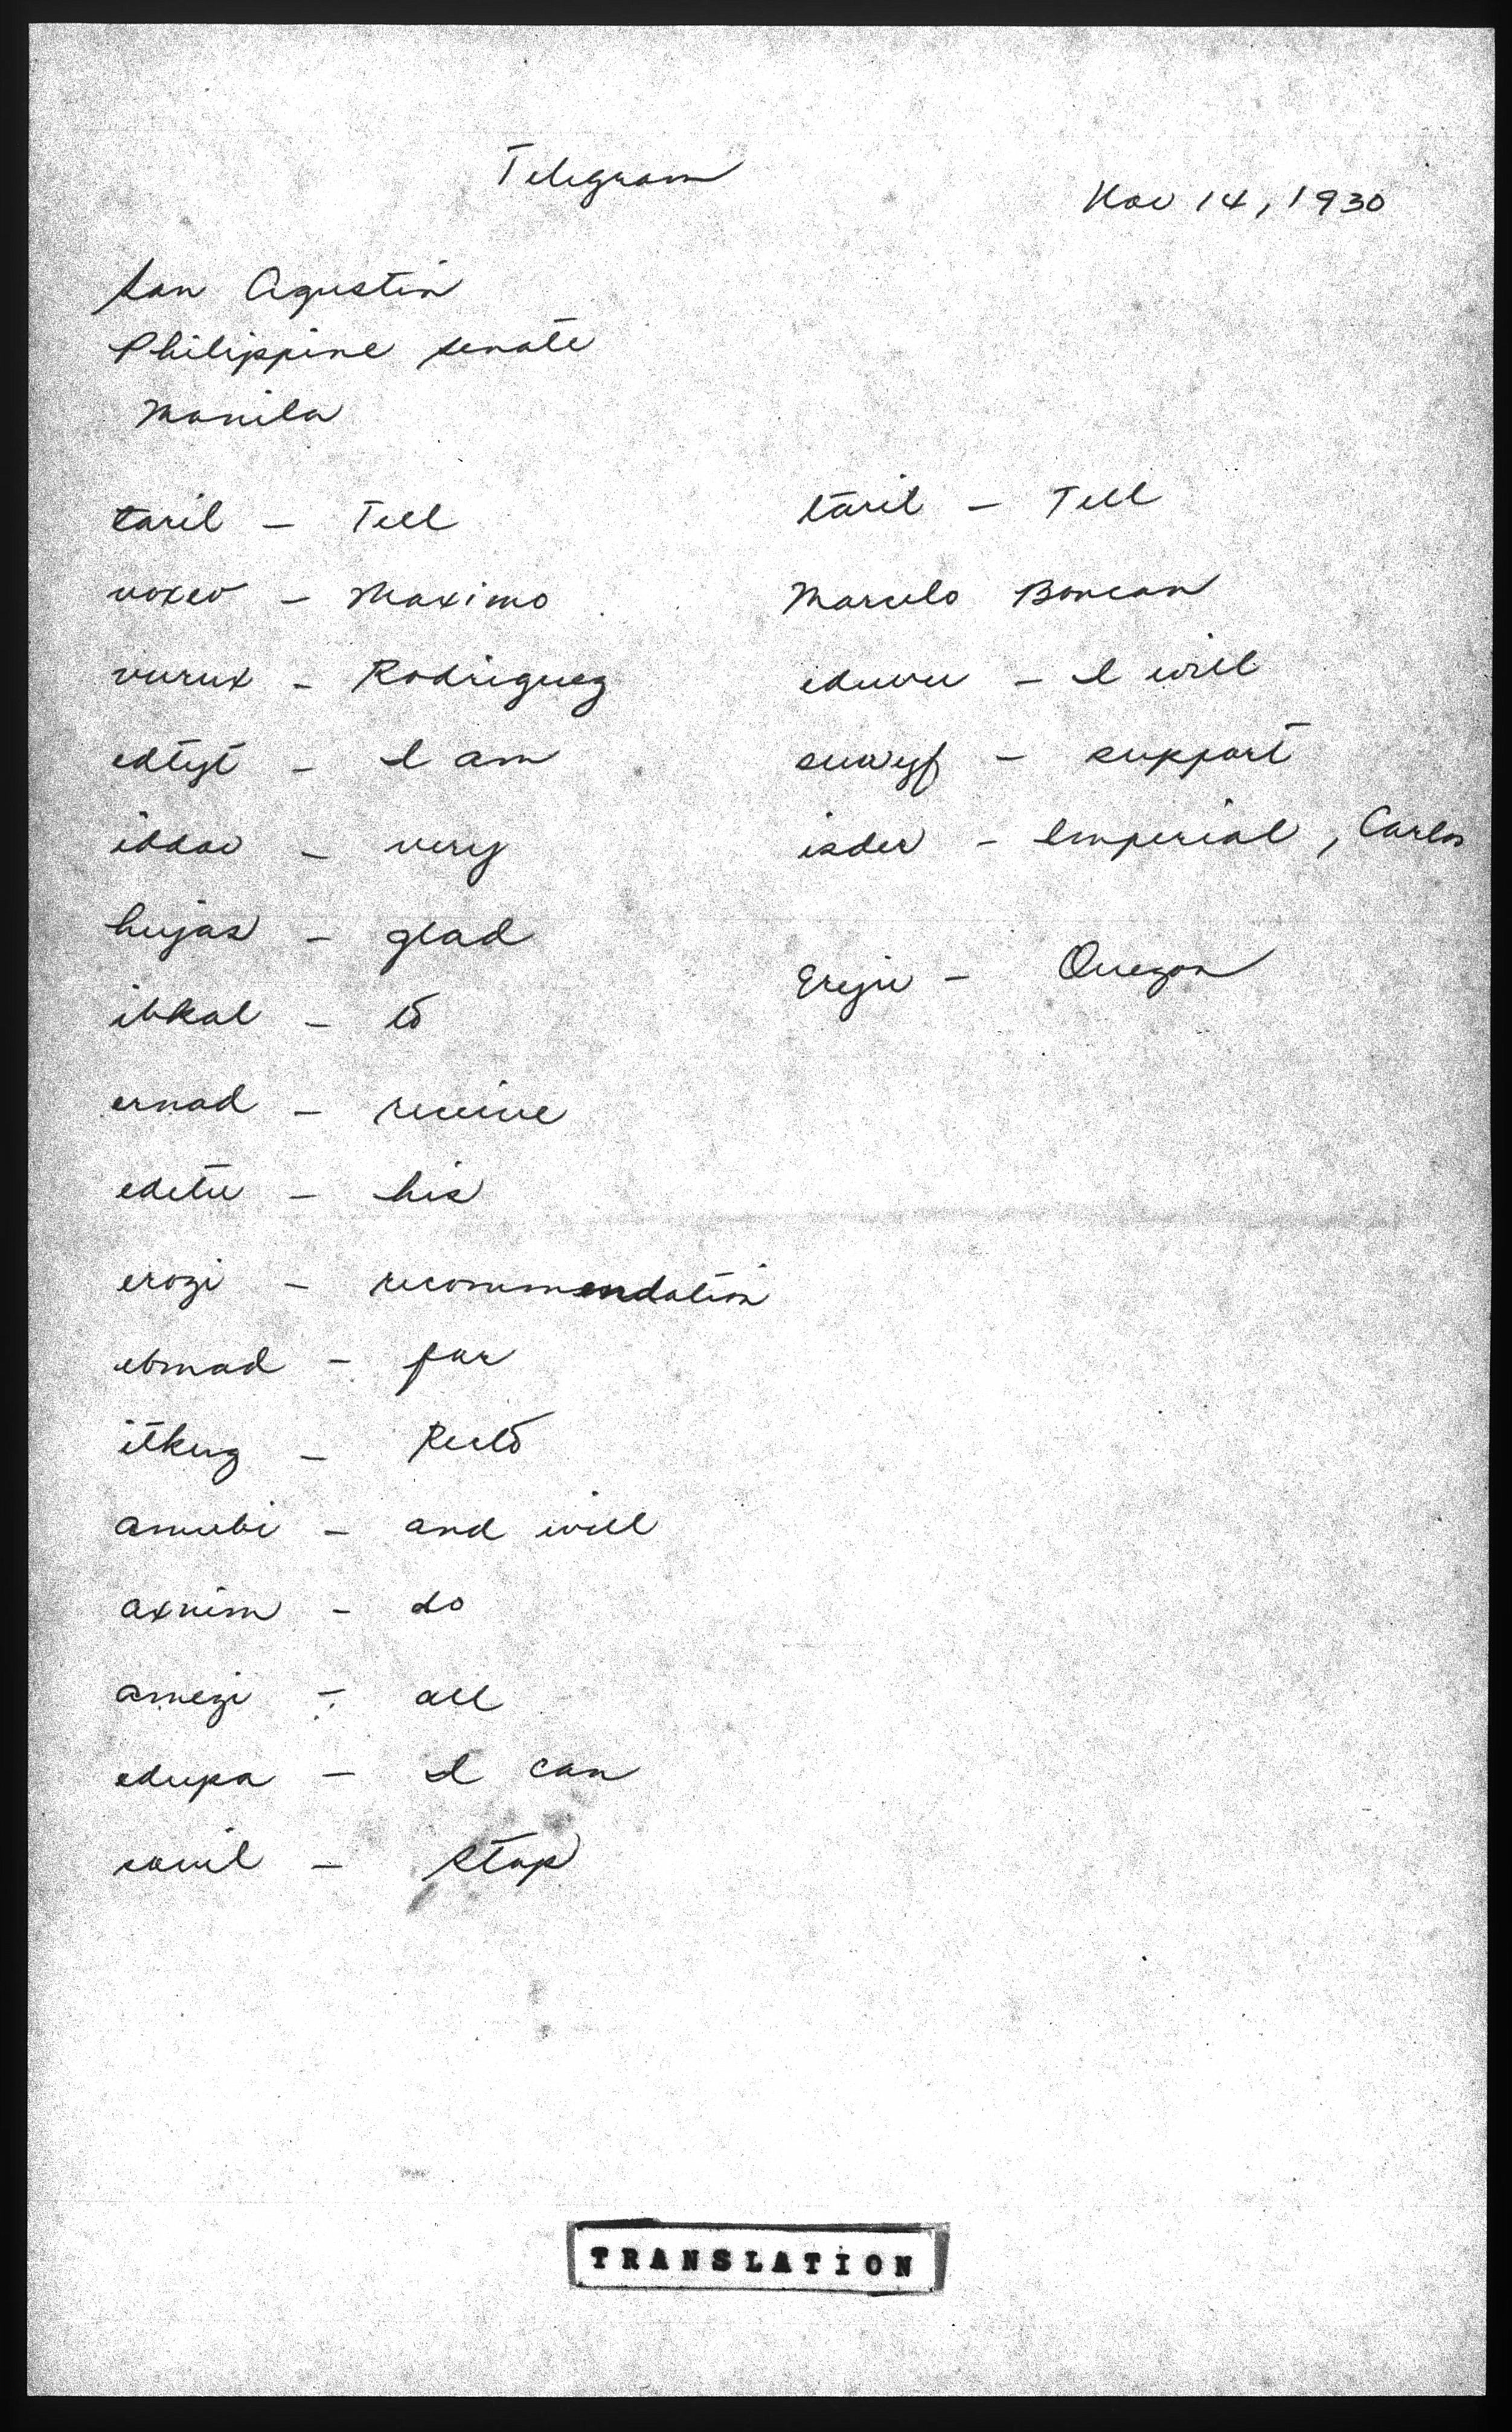 Telegram
Nov 14, 1930
San Agustin
Philippine Senate
Manila
taril - Tell
uoxev - Maximo
vurux - Rodriguez
edtyt - I am
iddao - very
hujas - glad
ibkal - to
ernad - receive
edetu - his
erozi - recommendation
ebmad - for
itkug - Recto
amubi - and will
axnim - do
amezi - all
edupa - I can
sowil - stop
taril - Tell
Marcelo Boncan
eduvu - I will
suwyf - support
isder - Imperial, Carlos
Eryiv - Quezon
TRANSLATION